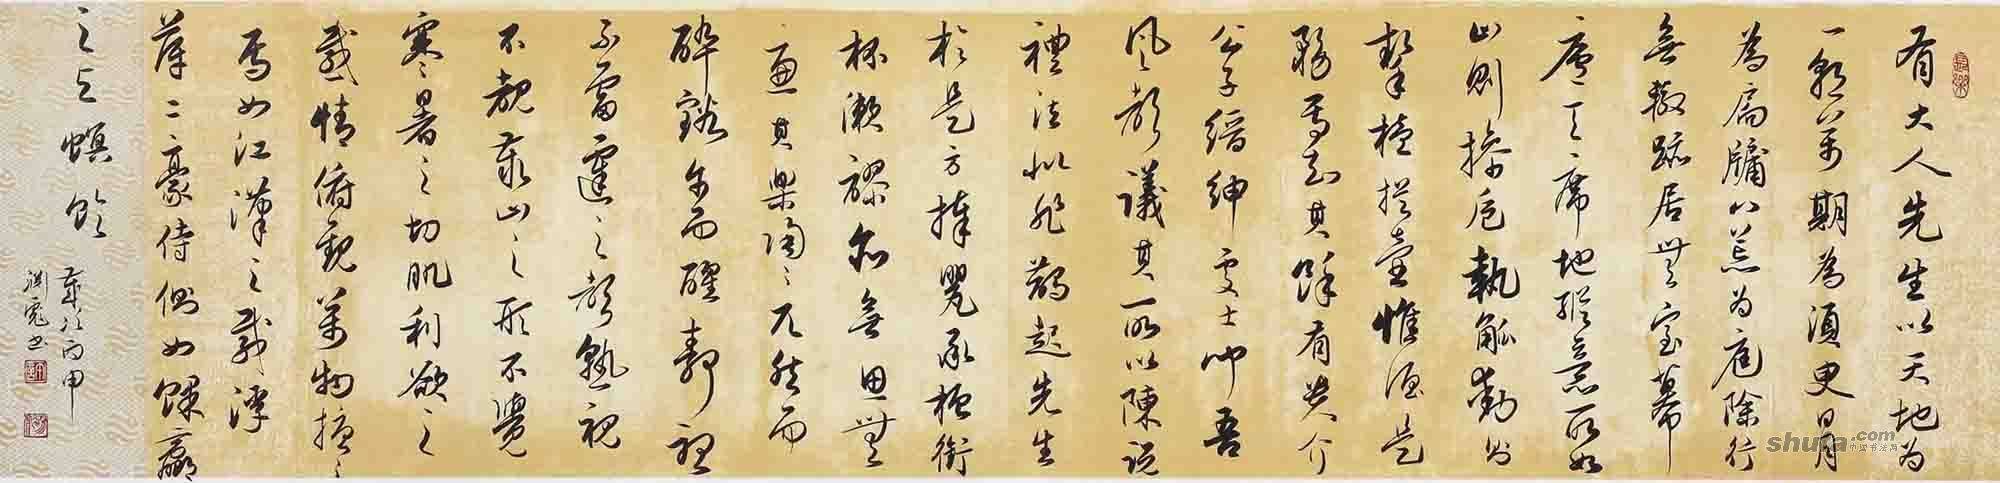 有大人先生以天地为
一朝万期為須臾日月
為扃牖八荒为庭除行
無轍跡居無室幕
庐天席地縱意所如
止則操卮執觚動則
挈榼提壺惟酒是
務焉知其餘有貴介
公子縉紳處士聞吾
風聲議其所以陳說
禮法是非鋒起先生
於是方捧罌承槽銜
杯漱醪無思無
慮其樂陶々兀然而
醉豁尔而醒靜聽
不雷霆之聲熟視
不覩泰山之形不覺
寒暑之切肌利欲之
感情俯觀萬物擾々
焉如江漢之載浮
萍二豪侍側如蜾蠃
之与螟蛉
歲次丙申
书
shufa.com
中国书法网